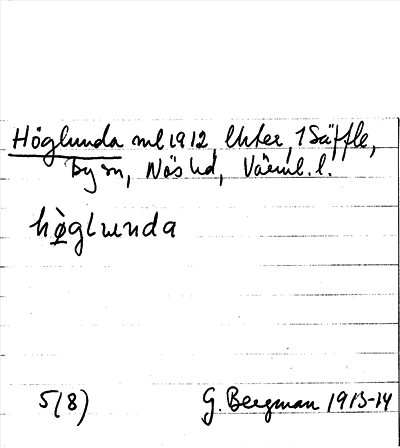 Höglunda ml 1912, Ekter, 1 Säffle,
By sn, Näs hd, Värml. l.
hø̀glunda
5(8) G. Bergman 1913-14